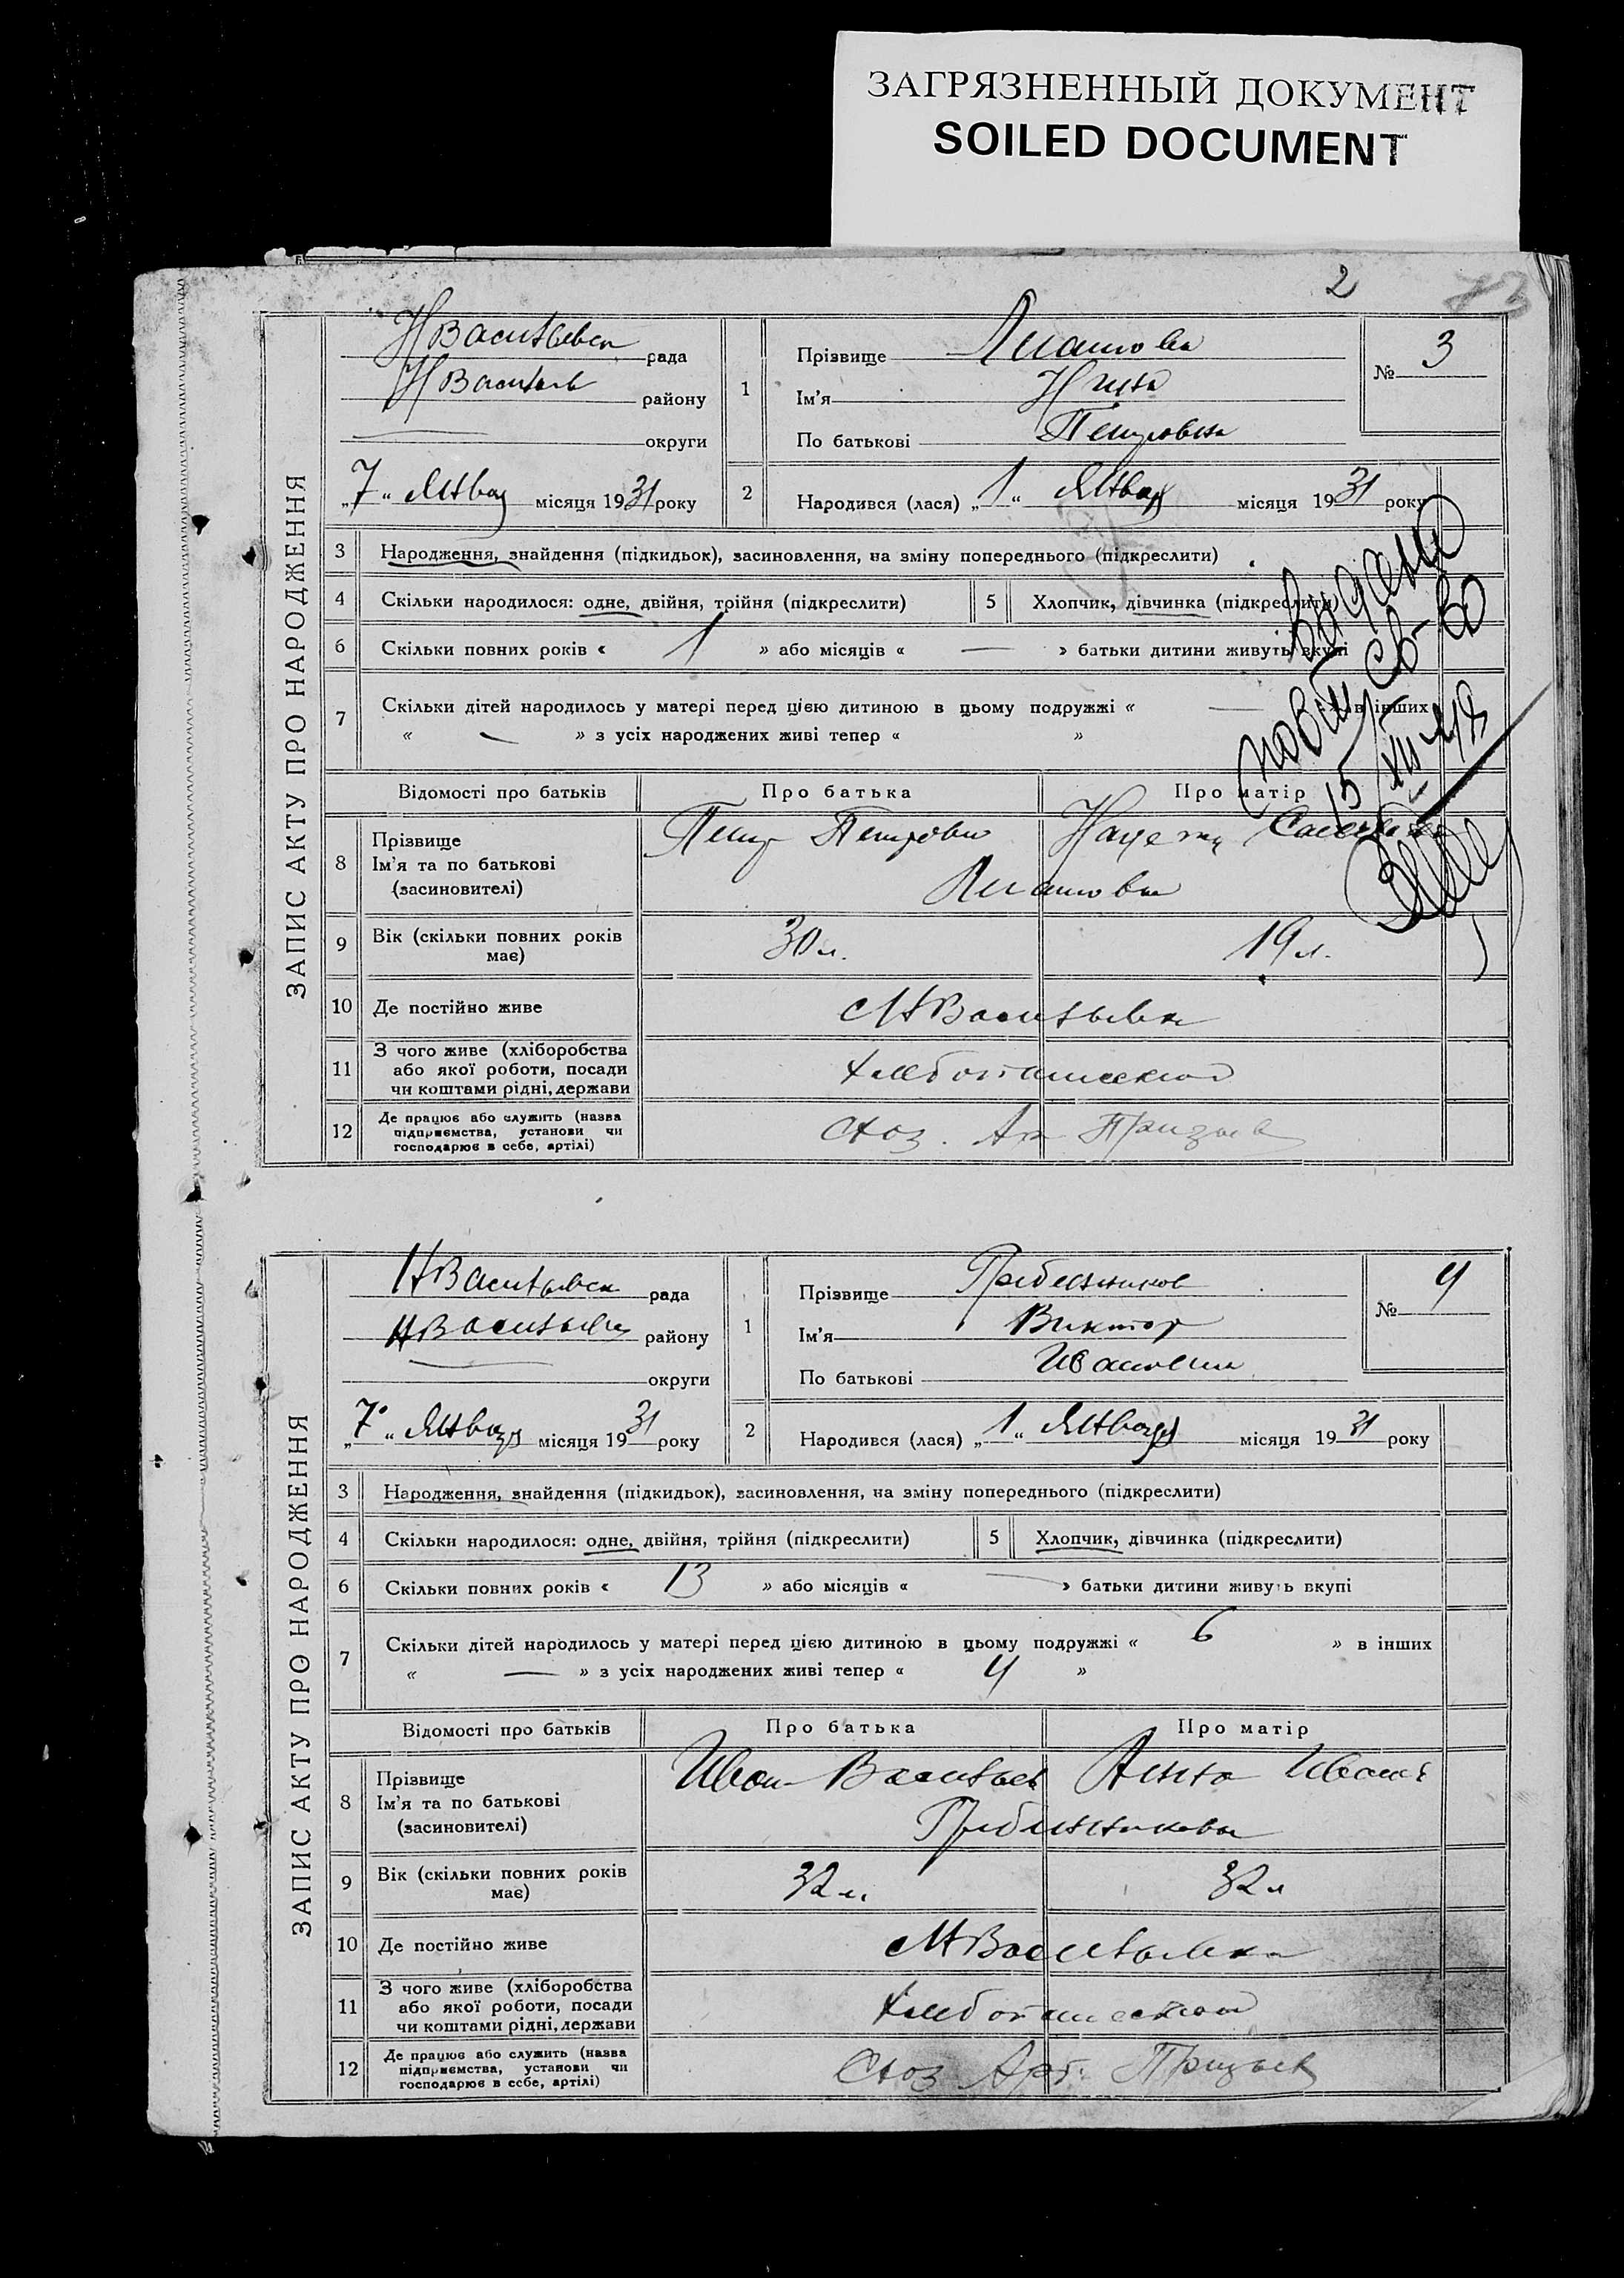 ЗАГРЯЗНЕННЫЙ ДОКУМЕНТ
SOILED DOCUMENT
2
73
ЗАПИС АКТУ ПРО НАРОДЖЕННЯ
НВасильевск рада
НВасильев району
округи
„7“ Января місяця 1931 року
1
Прізвище
Ім'я Нина
По батькові Петровна
№ 3
2 Народився (лася) „1“ Января місяця 1931 року
3 Народження, знайдення (підкидьок), засиновлення, на зміну попереднього (підкреслити)
4 Скільки народилося: одне, двійня, трійня (підкреслити)
5 Хлопчик, дівчинка (підкреслити)
6 Скільки повних років « 1 » або місяців « — » батьки дитини живуть вкупі
7 Скільки дітей народилось у матері перед цією дитиною в цьому подружжі « — » в інших
« — » з усіх народжених живі тепер « »
15/XII
Відомості про батьків
Про батька
Про матір
8 Прізвище
Ім'я та по батькові
(засиновителі)
Петр Петрович
9 Вік (скільки повних років
має)
30 л.
19 л.
10 Де постійно живе
НВасильевка
11 З чого живе (хліборобства
або якої роботи, посади
чи коштами рідні, держави
12 Де працює або служить (назва
підприємства, установи чи
господарює в себе, артілі)
Соз. Призыв
ЗАПИС АКТУ ПРО НАРОДЖЕННЯ
НВасильевск рада
НВасильевск району
округи
„7“ Января місяця 1931 року
1
Прізвище
Ім'я Виктор
По батькові Иванович
№ 4
2 Народився (лася) „1“ Января місяця 1931 року
3 Народження, знайдення (підкидьок), засиновлення, на зміну попереднього (підкреслити)
4 Скільки народилося: одне, двійня, трійня (підкреслити)
5 Хлопчик, дівчинка (підкреслити)
6 Скільки повних років « 13 » або місяців « — » батьки дитини живуть вкупі
7 Скільки дітей народилось у матері перед цією дитиною в цьому подружжі « 6 » в інших
« — » з усіх народжених живі тепер « 4 »
Відомості про батьків
Про батька
Про матір
8 Прізвище
Ім'я та по батькові
(засиновителі)
Иван Васильев
Анна Иван
9 Вік (скільки повних років
має)
32 л.
32 л
10 Де постійно живе
НВасильевка
11 З чого живе (хліборобства
або якої роботи, посади
чи коштами рідні, держави
12 Де працює або служить (назва
підприємства, установи чи
господарює в себе, артілі)
Соз Арт. Призыв